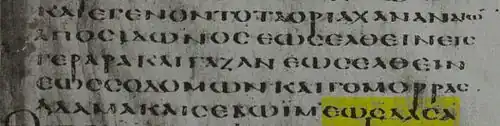 ΚΑΙΕΓΕΝΟΝΤΟΤΑΟΡΙΑΧΑΝΑΝΑΙⲰ
ΑΠΟϹΙΔⲰΝΟϹΕⲰϹΕΛΘΕΙΝΕΙϹ
ΓΕΡΑΡΑΚΑΙΓΑΖΑΝΕⲰϹΕΛΘΕΙΝ
ΕⲰϹϹΟΔΟΜⲰΝΚΑΙΓΟΜΟΡΡΑϹ
ΑΔΑΜΑΚΑΙϹΕΒⲰΙΜΕⲰϹΛΑϹΑ